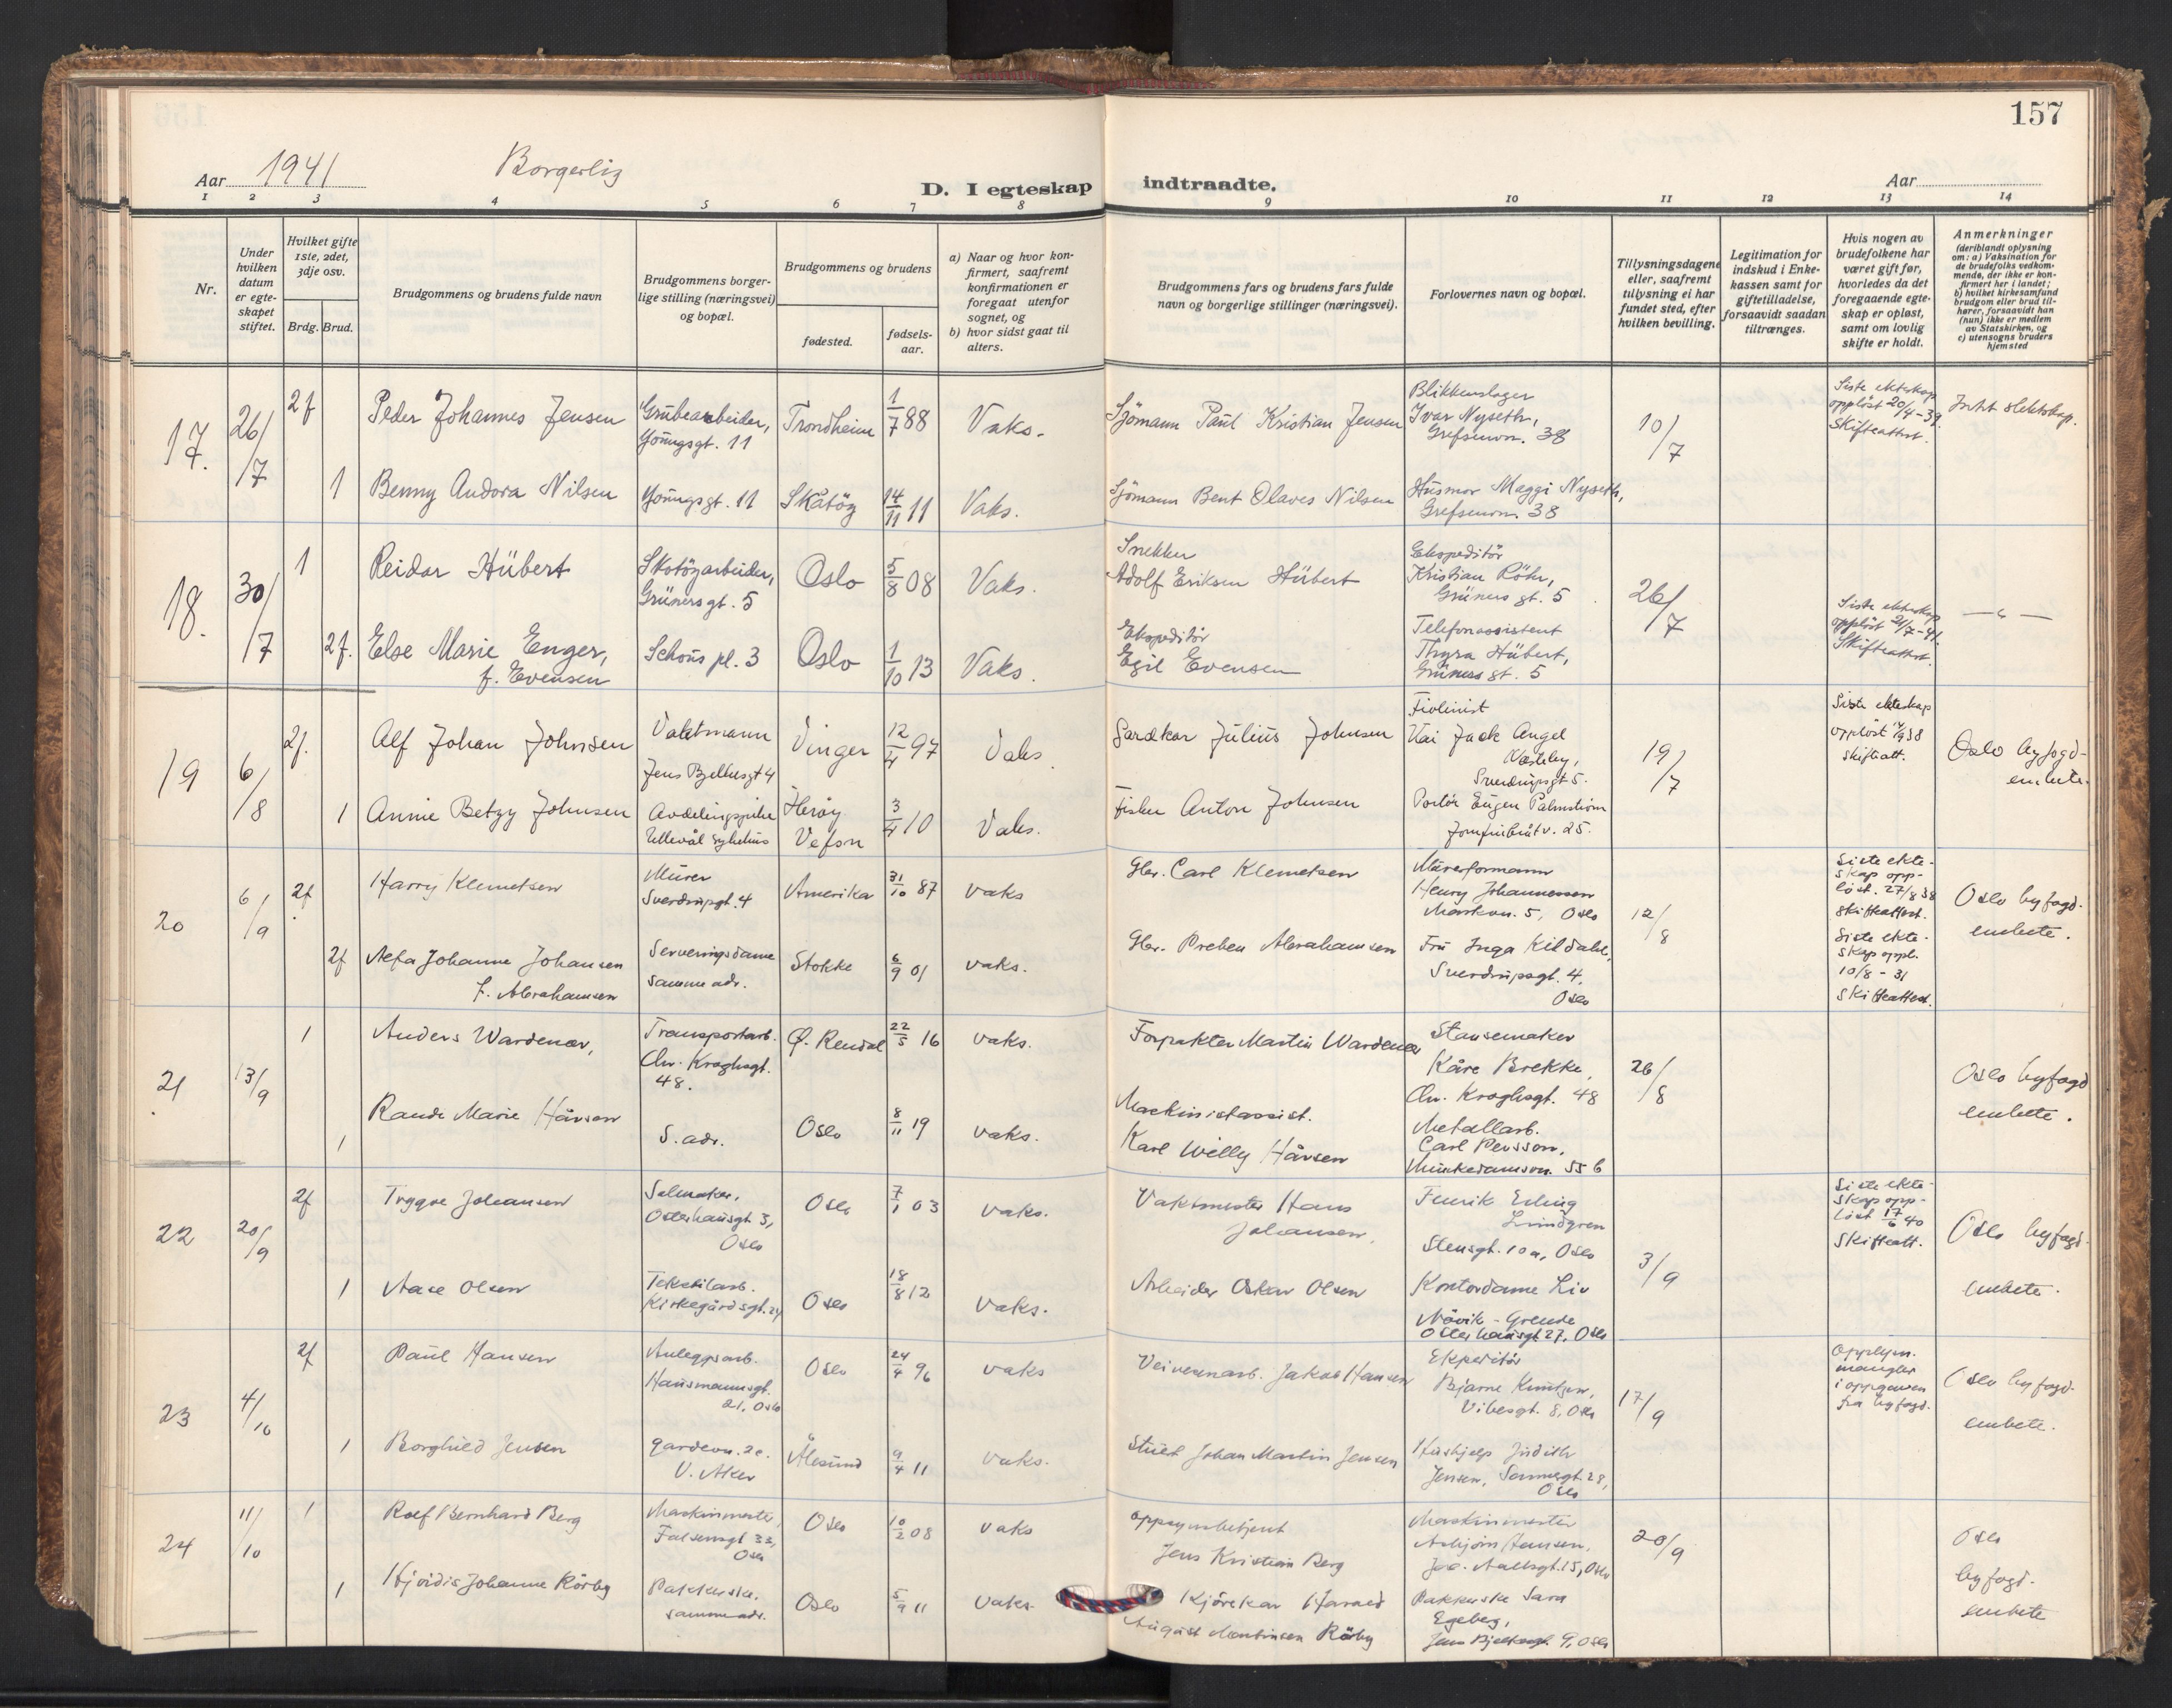 157
Aar 1941
Borgerlig
D. I egteskap indtraadte.
Aar
1 2 3 4 5 6 7 8 9 10 11 12 13 14
Nr.
Under hvilken datum er egteskapet stiftet.
Hvilket gifte 1ste, 2det, 3dje osv.
Brdg. Brud.
Brudgommens og brudens fulde navn
Brudgommens borgerlige stilling (næringsvei) og bopæl.
Brudgommens og brudens
fødested.
fødselsaar.
a) Naar og hvor konfirmert, saafremt konfirmationen er foregaat utenfor sognet, og
b) hvor sidst gaat til alters.
Brudgommens fars og brudens fars fulde navn og borgerlige stillinger (næringsvei).
Forlovernes navn og bopæl.
Tillysningsdagene eller, saafremt tillysning ei har fundet sted, efter hvilken bevilling.
Legitimation for indskud i Enkekassen samt for giftetilladelse, forsaavidt saadan tiltrænges.
Hvis nogen av brudefolkene har været gift før, hvorledes da det foregaaende egteskap er opløst, samt om lovlig skifte er holdt.
Anmerkninger
(deriblandt oplysning om: a) Vaksination for de brudefolks vedkommende, der ikke er konfirmert her i landet; b) hvilket kirkesamfund brudgom eller brud tilhører, forsaavidt han (hun) ikke er medlem av Statskirken, og c) utensogns bruders hjemsted
17. 26/7 2f Peder Johannes Jensen
Grubearbeider, Youngsgt. 11
Trondheim 1/7 88 Vaks.
Sjömann Paul Kristian Jensen
Blikkenslager Ivar Nyseth, Grefsenvn. 38
10/7
Siste ekteskap opplöst 20/4-39. Skifteattest.
Intet slektskap.
1 Benny Andora Nilsen
Youngsgt. 11 Skåtöy 14/11 11 Vaks.
Sjömann Bent Olaves Nilsen
Husmor Maggi Nyseth, Grefsenvn. 38
18. 30/7 1 Reidar Hübert
Skotöyarbeider, Grüners gt. 5
Oslo 5/8 08 Vaks.
Snekker Adolf Eriksen Hübert
Ekspeditör Kristian Röhr, Grüners gt. 5
26/7
2f. Else Marie Enger, f. Evensen
Schous pl. 3 Oslo 1/10 13 Vaks.
Ekspeditör Egil Evensen
Telefonassistent Thyra Hübert, Grüners gt. 5
Siste ekteskap opplöst 21/7-41. Skifteattest.
— " —
19 6/8 2f. Alf Johan Johnsen
Vaktmann Jens Bjelkesgt 4
Vinger 12/4 97 Vaks.
Gardkar Julius Johnsen
Fiolinist Kai Jack Angel Næsteby, Sverdrupsgt 5.
19/7
Siste ekteskap opplöst 1938 skifteatt.
Oslo byfogdembete.
1 Annie Betzy Johnsen
Avdelingspike Ullevål sykehus
Heröy Vefsn 3/4 10 Vaks.
Fisker Anton Johnsen
Portör Eugen Palmström Jomfrubråtv. 25.
20 6/9 2f Harry Klemetsen
Murer Sverdrupsgt. 4
Amerika 31/10 87 vaks
Gbr. Carl Klemetsen
Murerformann Henry Johannessen 5, Oslo
12/8
Siste ekteskap opplöst. 27/8 38 skifteattest.
Oslo byfogdembete.
2f Alfa Johanne Johansen f. Abrahamsen
Serveringsdame samme adr.
Stokke 6/9 01 vaks.
Gbr. Preben Abrahamsen
Fru Inga Kildahl, Sverdrupsgt. 4, Oslo
Siste ekteskap oppl. 10/8 - 31 skifteattest.
21 13/9 1 Anders Wardenær,
Transportarb. Chr. Kroghsgt. 48.
Ø. Rendal 22/5 16 vaks.
Forpakter Martin Wardenær
Stansemaker Kåre Brekke, Chr. Kroghsgt. 48
26/8
Oslo byfogdembete.
1 Rande Marie Håvsen
S. adr. Oslo 8/11 19 vaks.
Maskinistassist. Karl Willy Håvsen
Metallarb. Carl Persson, Munkedamsvn. 55 b
22 20/9 2f Trygve Johansen
Salmaker, Osterhausgt. 3, Oslo
Oslo 7/1 03 vaks.
Vaktmester Hans Johansen,
Fenrik Erling Lundgren Stensgt. 10 a, Oslo
3/9
Siste ekteskap opplöst 17/6 40 skifteatt.
Oslo byfogdembete.
1 Aase Olsen
Tekstilarb. Kirkegårdsgt. 24
Oslo 18/8 12 vaks.
Arbeider Oskar Olsen
Kontordame Liv Növik-Grende Osterhausgt 27, Oslo
23 4/10 2f Paul Hansen
Anleggsarb. Hausmannsgt. 21, Oslo
Oslo 24/4 96 vaks
Veivesenarb. Jakob Hansen
Ekspeditör Bjarne Knutzen, Vibesgt. 8, Oslo
17/9
Opplysn. mangler i oppgaven fra byfogd.
Oslo byfogdembete.
1 Borghild Jensen
Gardevn. 2c. V. Aker
Ålesund 9/4 11 vaks.
Stuert Johan Martin Jensen
Hushjelp Judith Jensen, Sannergt. 28, Oslo
24 11/10 1 Rolf Bernhard Berg
Maskinmester, Falsensgt 33, Oslo
Oslo 10/2 08 vaks
Oppsynsbetjent Jens Kristian Berg
Maskinmester Asbjörn Hansen, Jac. Aallsgt. 15, Oslo
20/9
Oslo byfogdembete
1 Hjördis Johanne Rörby
Pakkerske. samme adr.
Oslo 5/9 11 vaks.
Kjörekar Harald August Martinsen Rörby
Pakkerske Sara Egeberg, Jens Bjelkesgt. 9, Oslo